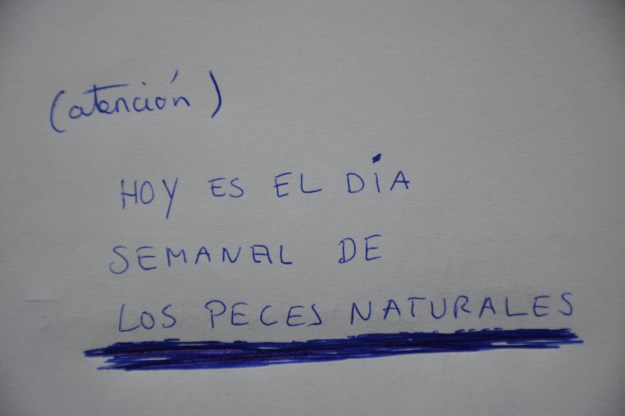 (atención)
HOY ES EL DÍA
SEMANAL DE
LOS PECES NATURALES